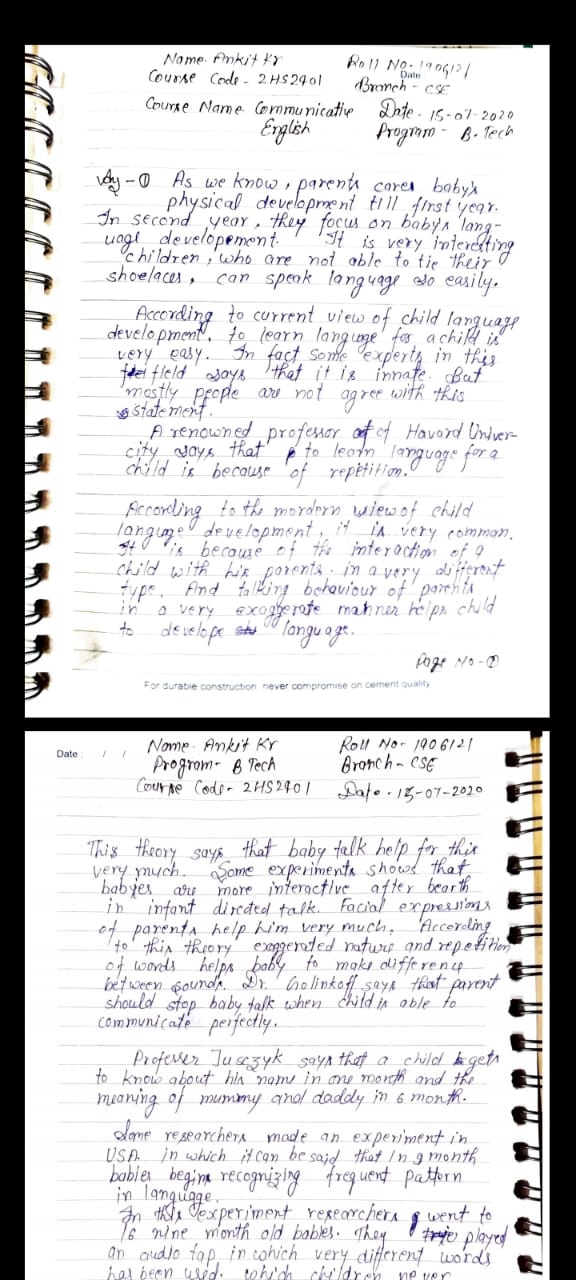 Name. Ankit Kr Roll No- 1906121
Date
Course Code - 2HS2401 Branch - CSE
Course Name Communicative Date. 15-07-2020
English Program - B.Tech
Ay - ① As we know, parents cares baby's
physical development till first year.
In second year, they focus on baby's lang-
uage developement. It is very interesting
children, who are not able to tie their
shoelaces, can speak language so easily.
According to current view of child language
development, to learn language for a child is
very easy. In fact some experts in this
field says that it is innate. But
mostly people are not agree with this
statement.
A renowned professor of Havard Univer-
city says that to learn language for a
child is because of repetition.
According to the mordern view of child
language development, it is very common.
It is because of the interaction of a
child with his parents. in a very different
type. And talking behaviour of parents
in a very exaggerate manner helps child
to develope language.
Page No - ①
For durable construction, never compromise on cement quality
Date : / / Name. Ankit Kr Roll No- 1906121
Program- B Tech Branch - CSE
Course Code- 2HS2401 Date. 15-07-2020
This theory says that baby talk help for this
very much. Some experiments shows that
babyes are more interactive after bearth
in infant directed talk. Facial expressions
of parents help him very much. According
to this theory exaggerated nature and repetition
of words helps baby to make difference
between sounds. Dr. Golinkoff says that parent
should stop baby talk when child is able to
communicate perfectly.
Professer Jusczyk says that a child gets
to know about his name in one month and the
meaning of mummy and daddy in 6 month.
Some researchers made an experiment in
USA in which it can be said that in 9 month
babies begins recognizing frequent pattern
in language.
In this experiment researchers went to
16 nine month old babies. They played
an audio tap in which very different words
has been used. which children never